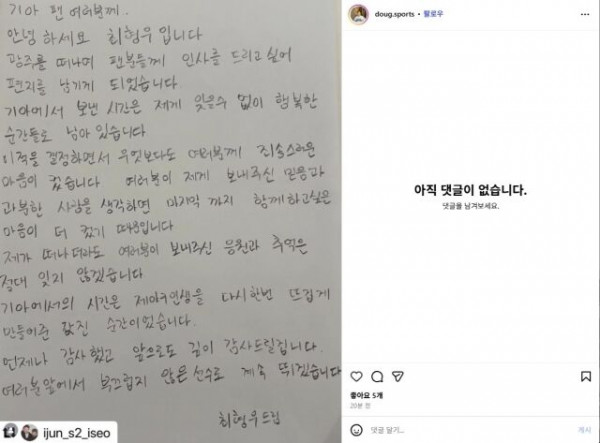 기아 팬 여러분께.
안녕하세요 최형우입니다
광주를 떠나며 팬분들께 인사를 드리고 싶어
편지를 남기게 되었습니다
기아에서 보낸 시간은 제게 잊을수 없이 행복한
순간들로 남아있습니다
이적을 결정하면서 무엇보다도 여러분께 죄송스러운
마음이 컸습니다 여러분이 제게 보내주신 믿음과
과분한 사랑을 생각하면 마지막 까지 함께하고싶은
마음이 더 컸기 때문입니다
제가 떠나더라도 여러분이 보내주신 응원과 추억은
절대 잊지 않겠습니다
기아에서의 시간은 제야구인생을 다시한번 뜨겁게
만들어준 값진 순간이었습니다.
언제나 감사했고 앞으로도 깊이 감사드릴겁니다.
여러분앞에서 부끄럽지 않은선수로 계속 뛰겠습니다
최형우드림
ijun_s2_iseo
doug.sports • 팔로우
아직 댓글이 없습니다.
댓글을 남겨보세요.
좋아요 5개
20분 전
댓글 달기...
게시